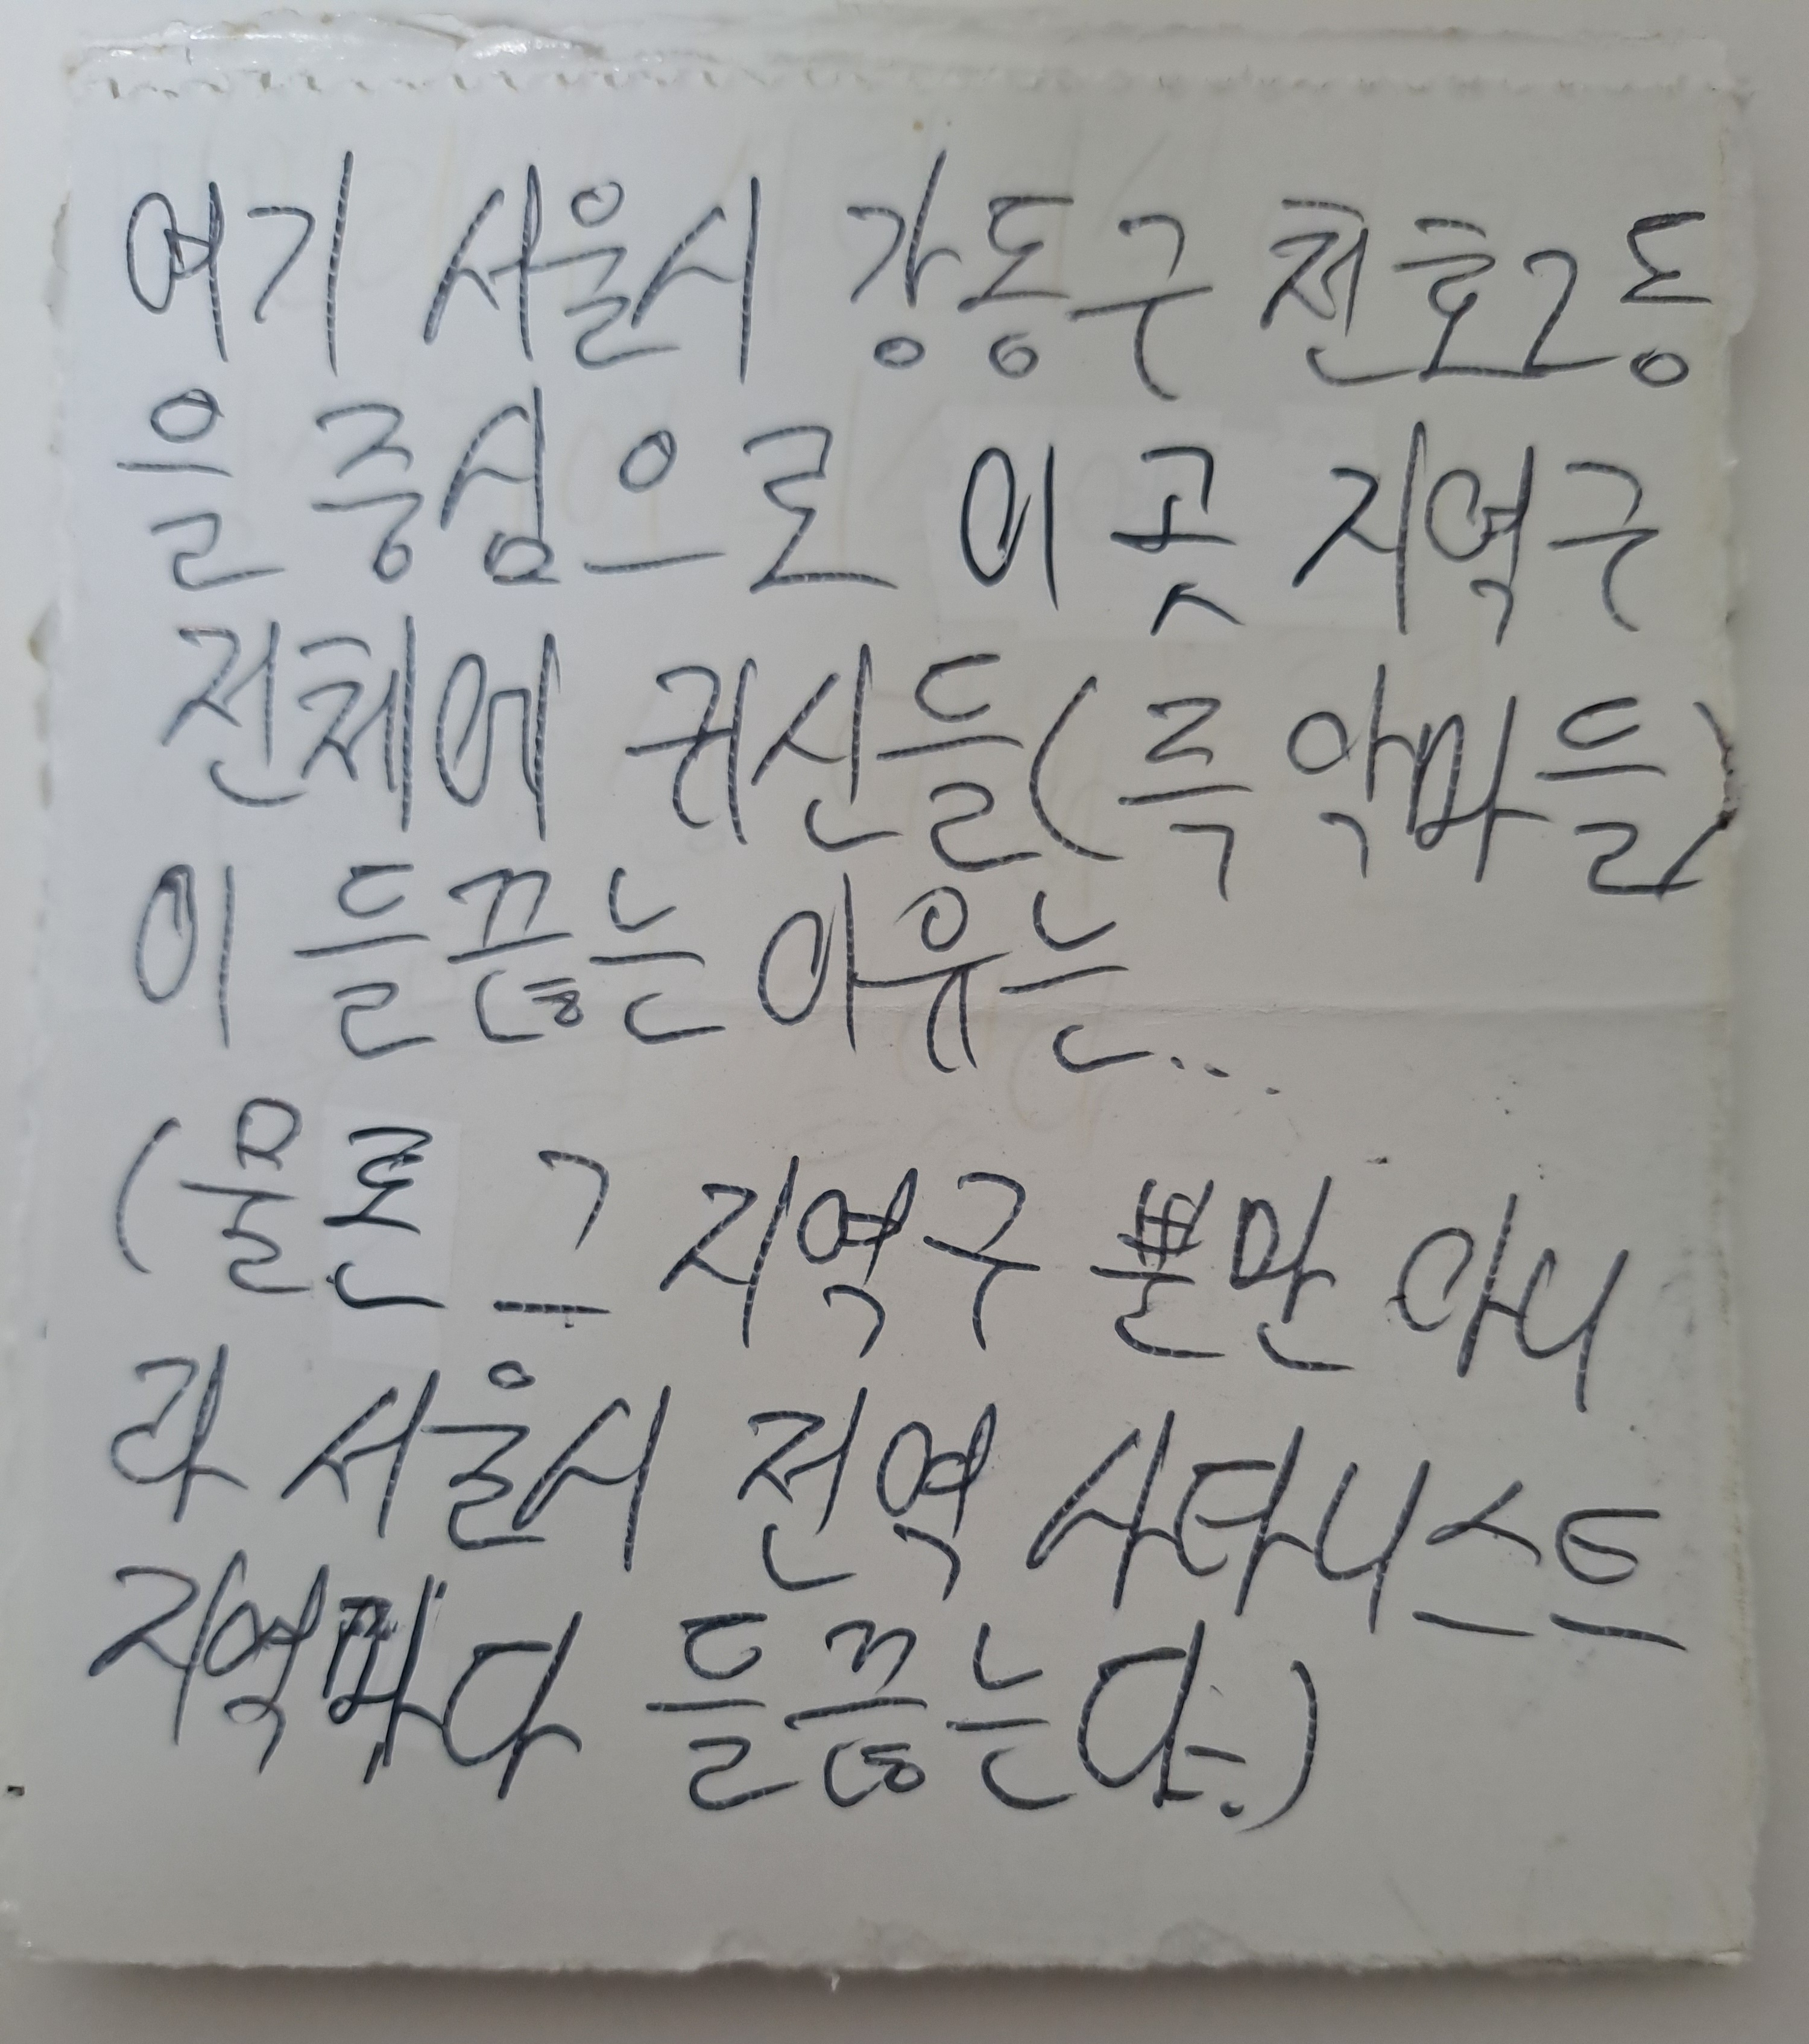 여기 서울시 강동구 천호2동
을 중심으로 이 곳 지역구
전체에 귀신들(즉 악마들)
이 들끓는 이유는...
(물론 그 지역구 뿐만 아니
라 서울시 전역 사타니스트
지역마다 들끓는다.)